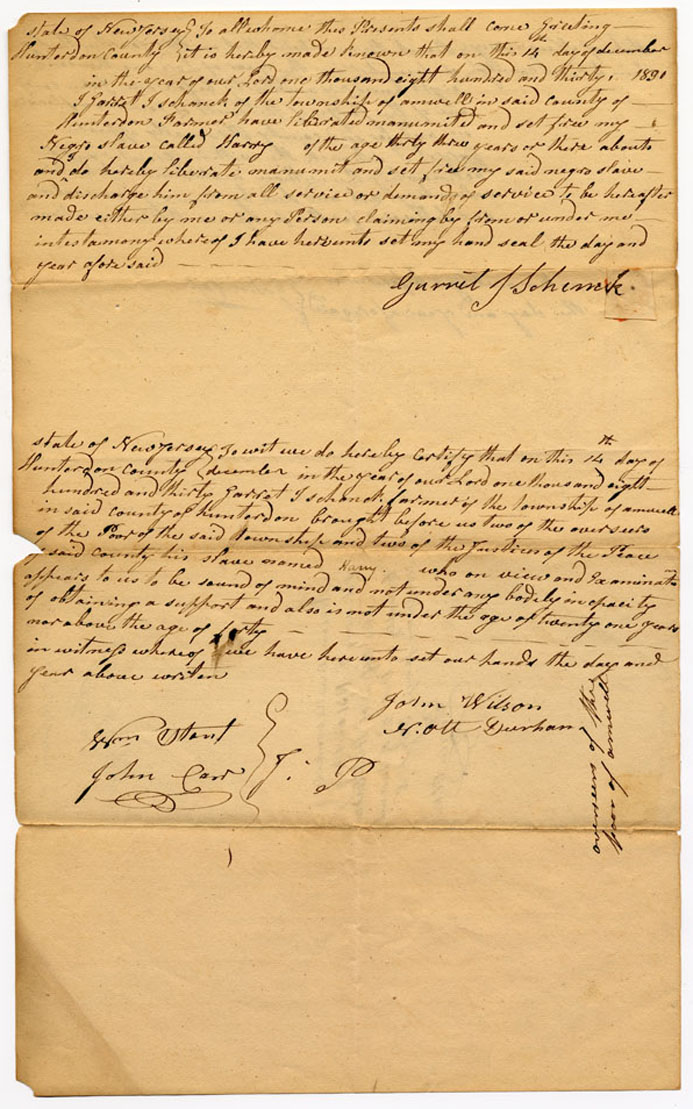 state of New Jersey } To all whome this Presents shall come Greeting
Hunterdon County } it is hereby made known that on this 14th day of december
in the year of our Lord one thousand eight hundred and thirty, 1830
I Garrat I schanck of the township of amwell in said County of
Hunterdon Farmer have liberated manumited and set free my
Negro slave called Harry of the age thirty three years or there abouts
and do hereby liberate manumit and set free my said negro slave
and discharge him from all service or demands of service to be hereafter
made either by me or any Person claiming by from or under me
intestamony whereof I have hereunto set my hand seal the day and
year afore said
Garret J Schenck
state of New Jersey } To wit we do hereby certify that on this 14th day of
Hunterdon County } december in the year of our Lord one thousand eight
hundred and thirty Garrat I schanck farmer of the township of amwell
in said County of Hunterdon brought before us two of the overseers
of the Poor of the said township and two of the Justices of the Peace
of said county his slave named Harry. who on view and Examination
appears to us to be sound of mind and not under any bodily incapacity
of obtaining a support and also is not under the age of twenty one years
nor above the age of forty
in witness whereof we have hereunto set our hands the day and
year above writen
John Wilson
N. Ott Durham
overseers of the
poor of amwell
Wm
John Carr } J: P